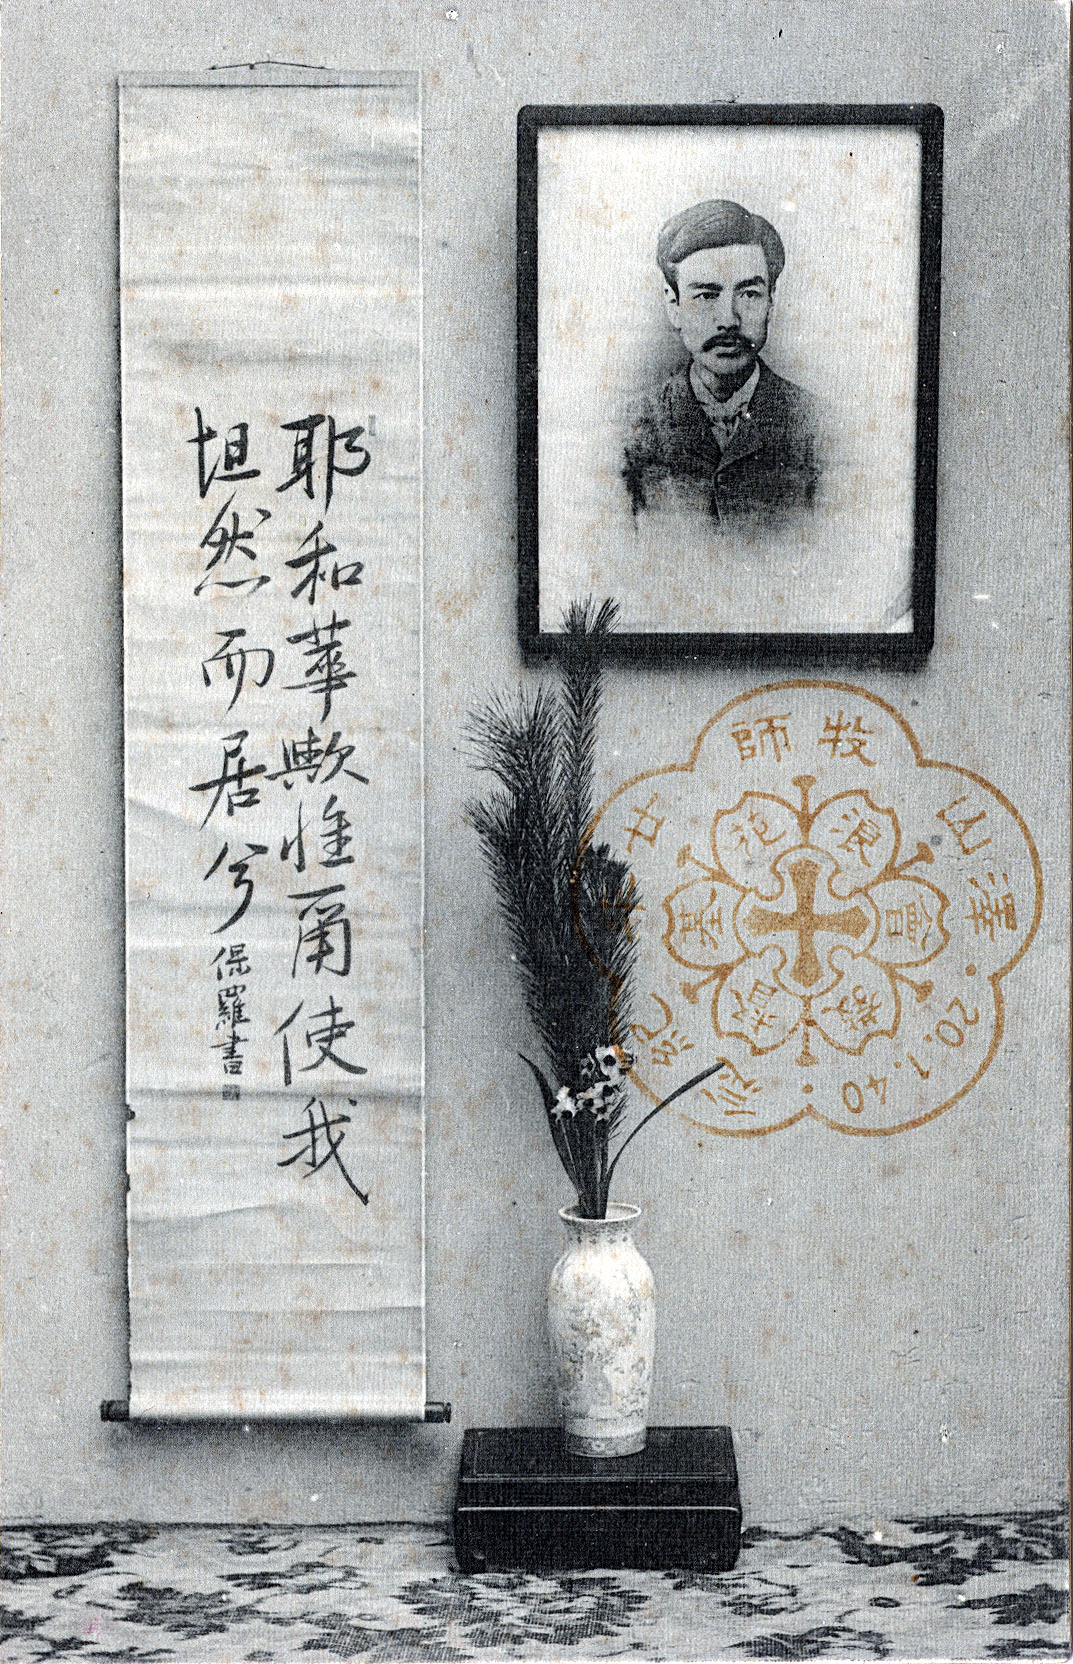 耶和華歟惟爾使我
坦然而居兮
保羅書
澤山牧師廿
紀念
20.1.40
浪花基督教會